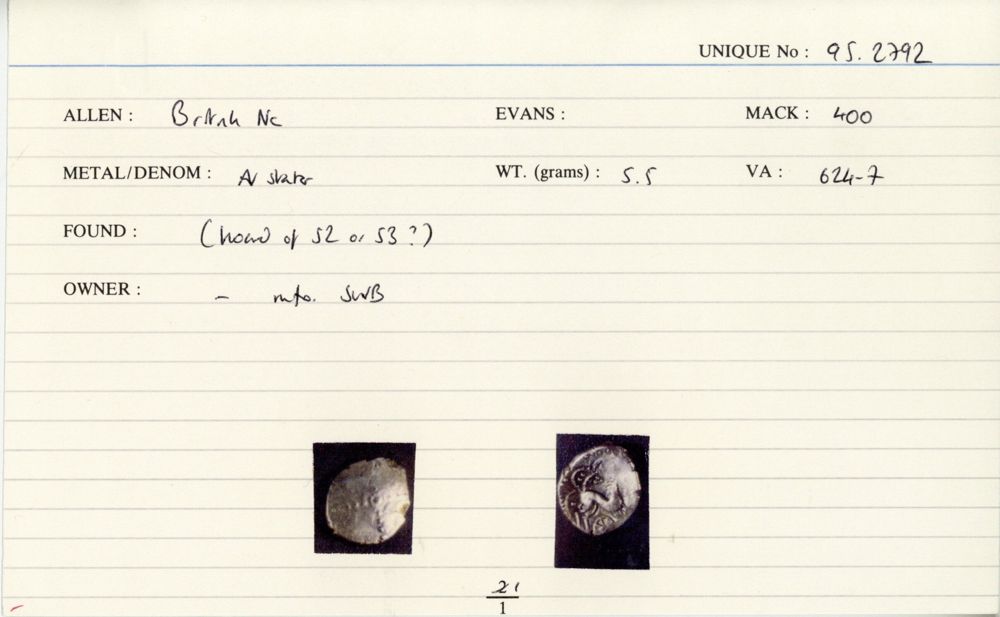 UNIQUE No : 95. 2792
ALLEN : British Nc EVANS : MACK : 400
METAL/DENOM : AV stater WT. (grams) : 5.5 VA : 624-7
FOUND : (hoard of 52 or 53 ?)
OWNER : - info. SWB
21
1